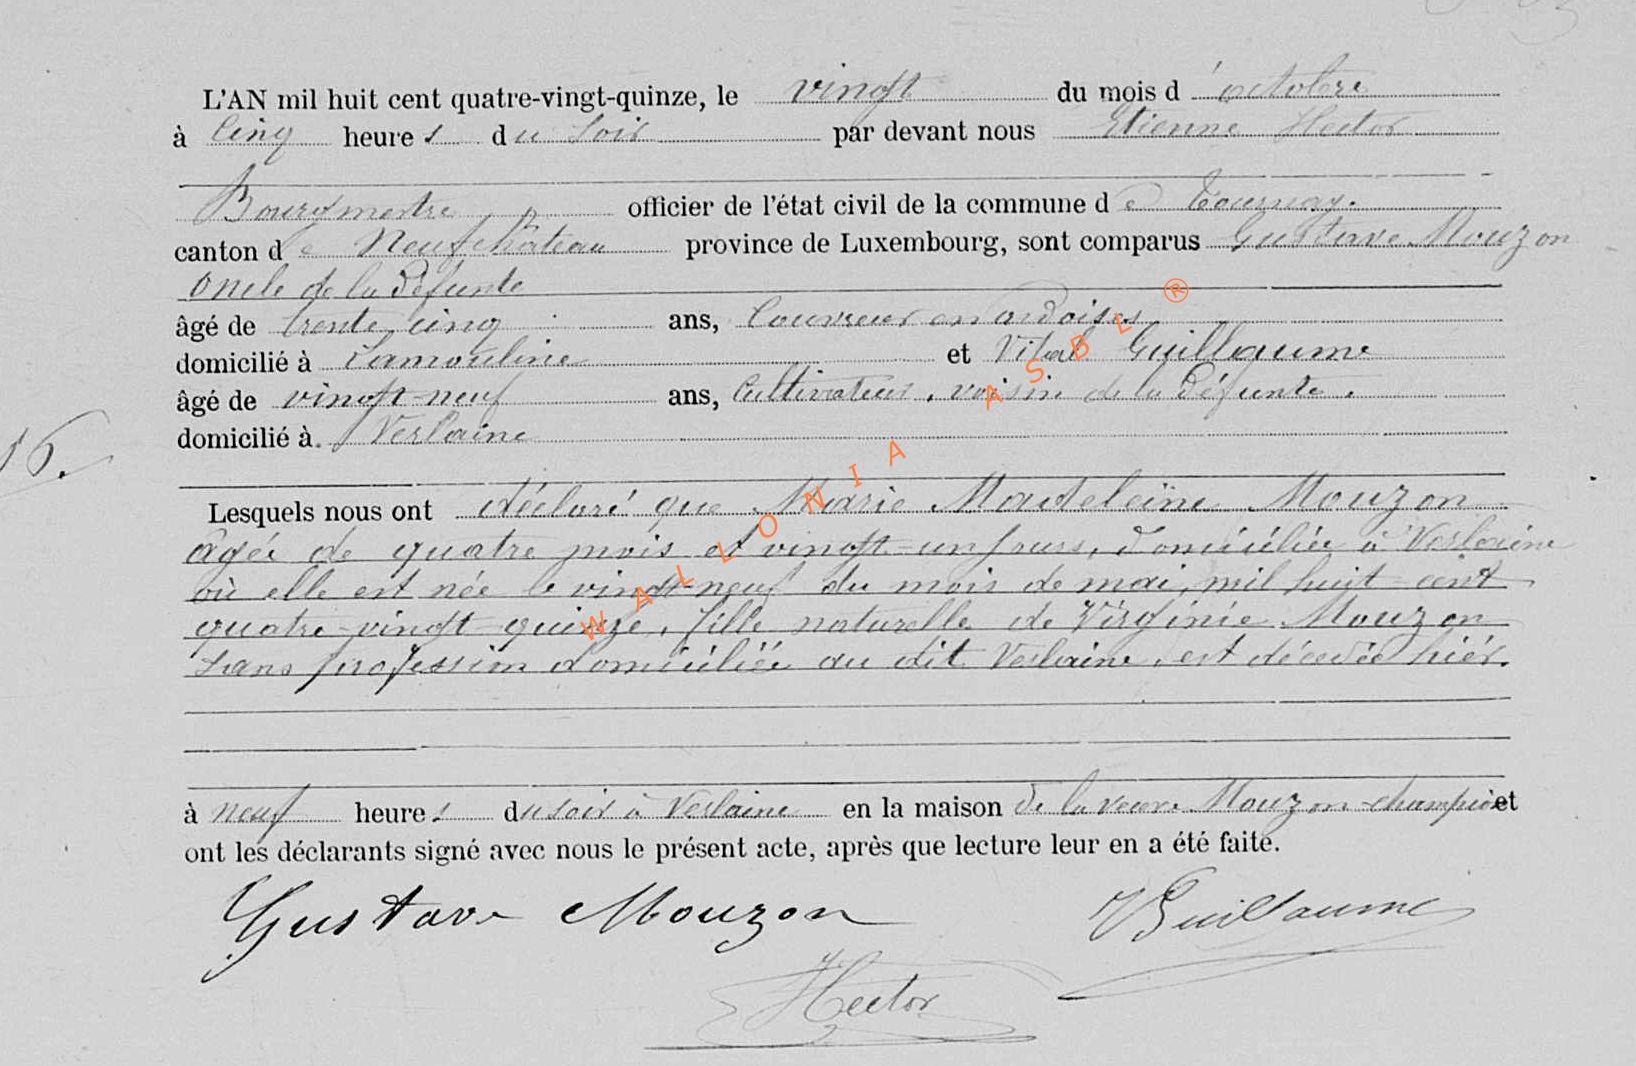 L'AN mil huit cent quatre-vingt-quinze, le vingt du mois d'octobre
à cinq heures du soir par devant nous Etienne Hector
Bourgmestre officier de l'état civil de la commune de Tournay.
canton de Neufchâteau province de Luxembourg, sont comparus Gustave Mouzon
oncle de la défunte
âgé de trente cinq ans, Couvreur en ardoises
domicilié à Lamouline et Vital Guillaume
âgé de vingt-neuf ans, Cultivateur, voisin de la défunte.
domicilié à Verlaine
16.
Lesquels nous ont déclaré que Marie Madeleine Mouzon
âgée de quatre mois et vingt-un jours, domiciliée à Verlaine
où elle est née le vingt-neuf du mois de mai, mil huit cent
quatre-vingt quinze, fille naturelle de Virginie Mouzon
sans profession domiciliée au dit Verlaine, est décédée hier.
à neuf heures du soir à Verlaine en la maison de la veuve Mouzon-champion et
ont les déclarants signé avec nous le présent acte, après que lecture leur en a été faite.
Gustave Mouzon VGuillaume
Hector
WALLONIA ASBL ®